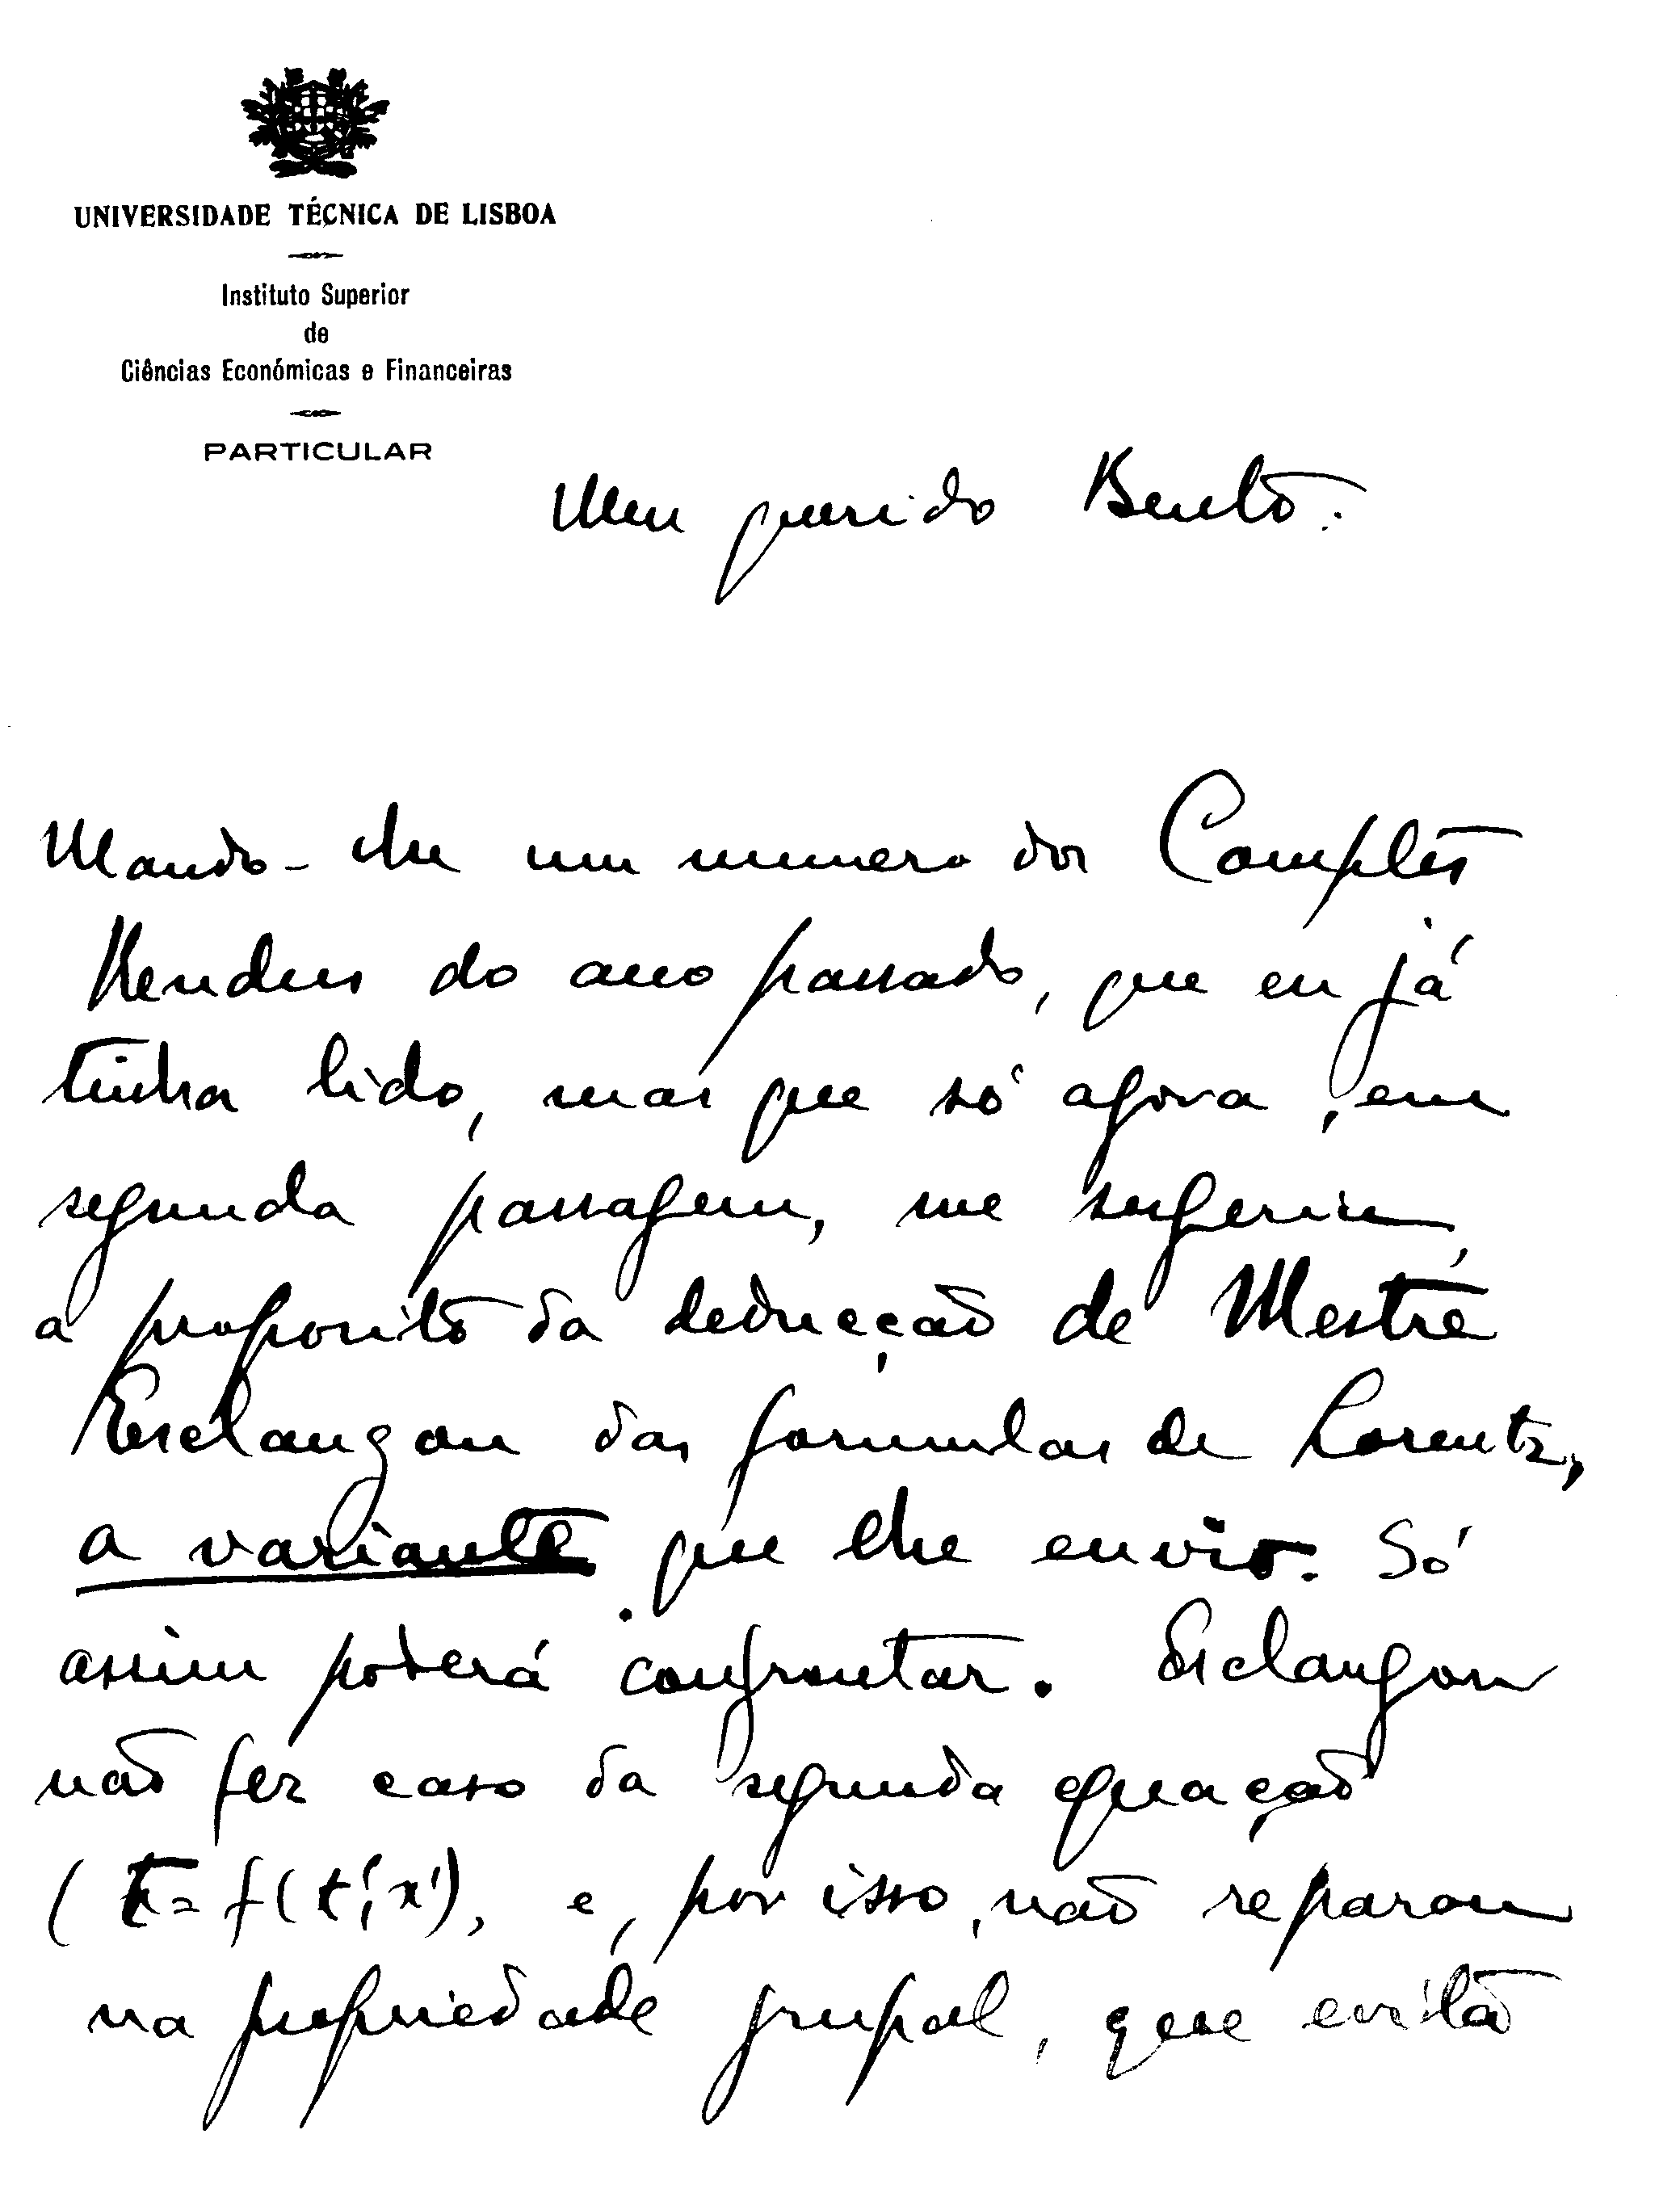 UNIVERSIDADE TÉCNICA DE LISBOA
Instituto Superior
de
Ciências Económicas e Financeiras
PARTICULAR
Meu querido Bento:
Mando-lhe um numero dos Comptes
Rendus do ano passado, que eu já
tinha lido, mas que só agora, em
segunda passagem, me sugeriu,
a proposito da deducção de Mestre
Esclangon das formulas de Lorentz,
a variante que lhe envio. Só
assim poderá confrontar. Esclangon
não fez caso da segunda equação
(t = f(t', x'), e, por isso, não reparou
na propriedade grupal, que evita